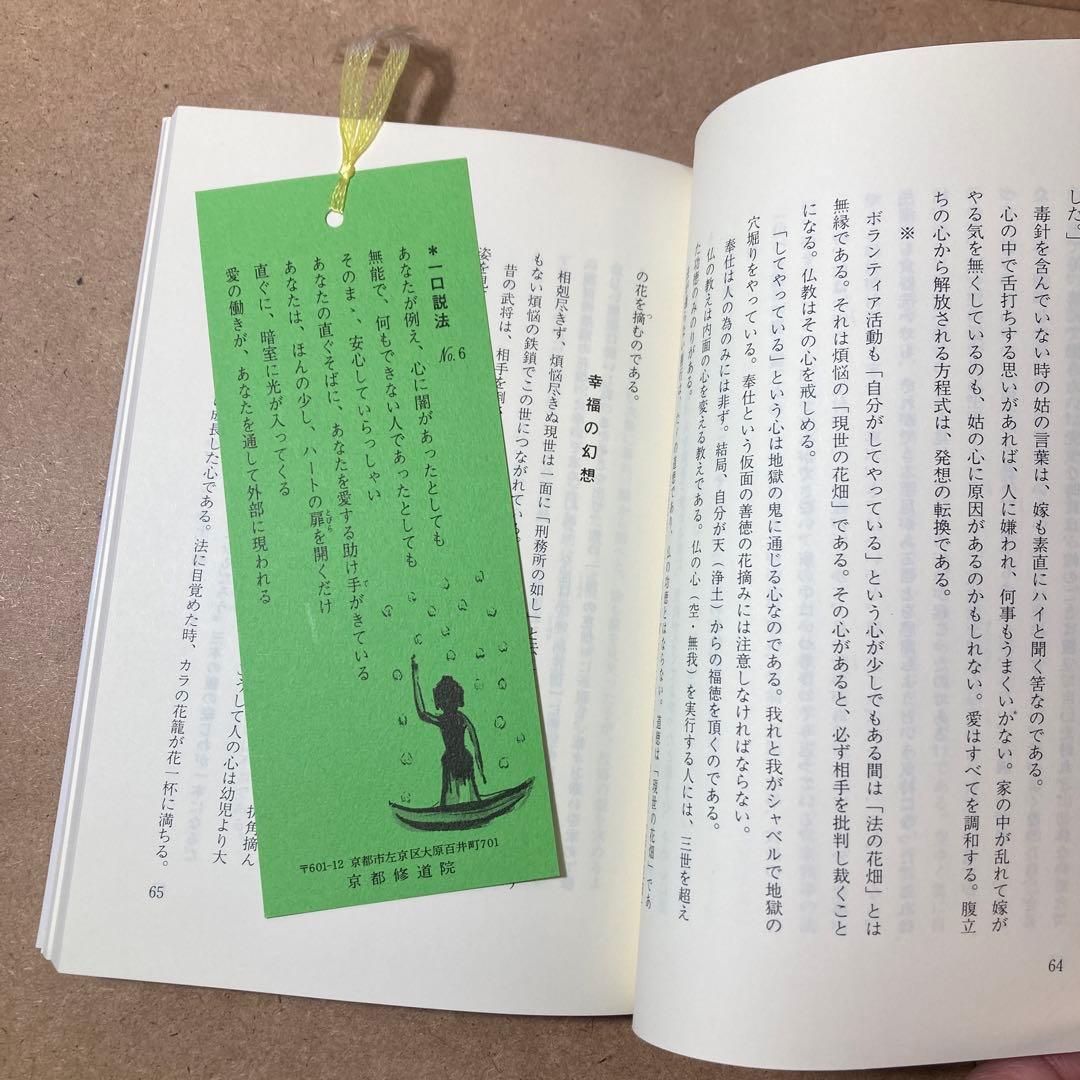 した。」
毒針を含んでいない時の姑の言葉は、嫁も素直にハイと聞く筈なのである。
心の中で舌打ちする思いがあれば、人に嫌われ、何事もうまくいがない。家の中が乱れて嫁が
やる気を無くしているのも、姑の心に原因があるのかもしれない。愛はすべてを調和する。腹立
ちの心から解放される方程式は、発想の転換である。
※
ボランティア活動も「自分がしてやっている」という心が少しでもある間は「法の花畑」とは
無縁である。それは煩悩の「現世の花畑」である。その心があると、必ず相手を批判し裁くこと
になる。仏教はその心を戒しめる。
「してやっている」という心は地獄の鬼に通じる心なのである。我れと我がシャベルで地獄の
穴堀りをやっている。奉仕という仮面の善徳の花摘みには注意しなければならない。
奉仕は人の為のみには非ず。結局、自分が天（浄土）からの福徳を頂くのである。
仏の教えは内面の心を変える教えである。仏の心（空・無我）を実行する人には、三世を超え
た功徳のみのりがある。
64
の花を摘むのである。
幸福の幻想
相剋尽きず、煩悩尽きぬ現世は一面に「刑務所の如し」と
もない煩悩の鉄鎖でこの世につながれている。
昔の武将は、相手を倒
姿を見
＊一口説法 No.6
あなたが例え、心に闇があったとしても
無能で、何もできない人であったとしても
そのまゝ、安心していらっしゃい
あなたの直ぐそばに、あなたを愛する助け手がきている
あなたは、ほんの少し、ハートの扉を開くだけ
直ぐに、暗室に光が入ってくる
愛の働きが、あなたを通して外部に現われる
〒601-12 京都市左京区大原百井町701
京都修道院
折角摘ん
して人の心は幼児より大
成長した心である。法に目覚めた時、カラの花籠が花一杯に満ちる。
65